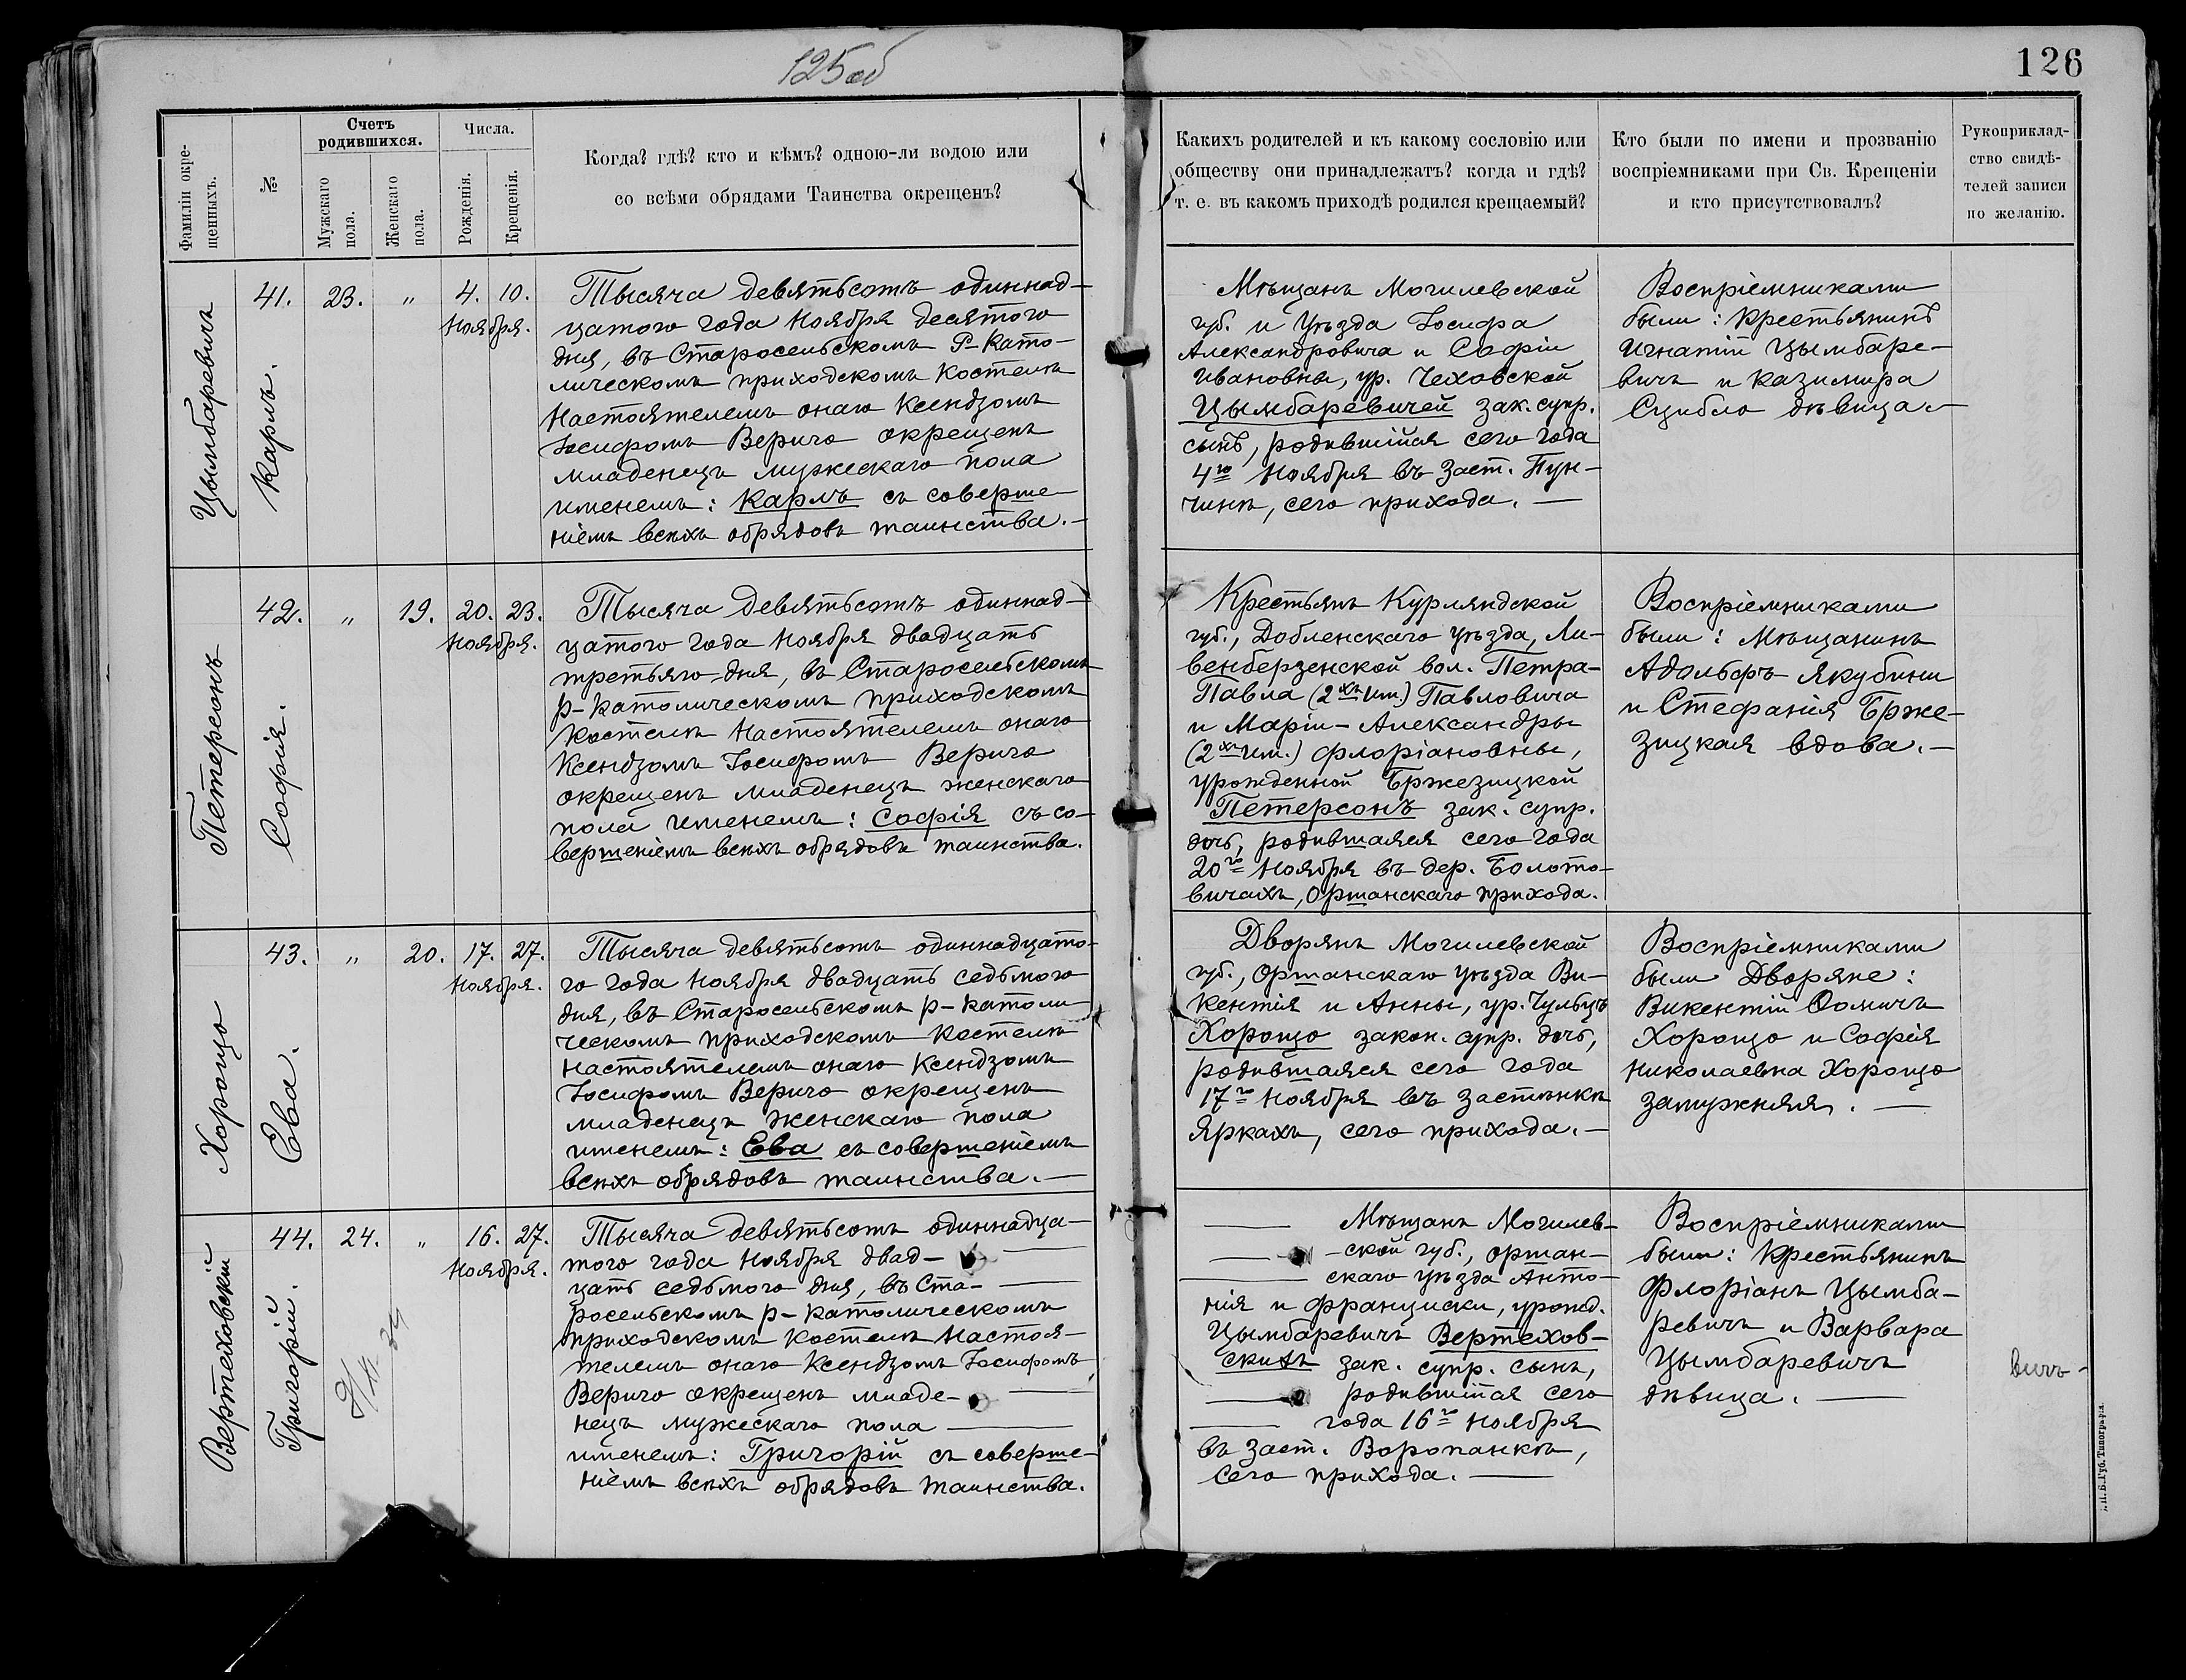 125 об
126
Фамиліи окре-
щенныхъ.
№
Счетъ
родившихся.
Мужскаго
пола.
Женскаго
пола.
Числа.
Рожденія.
Крещенія.
Когда? гдѣ? кто и кѣмъ? одною-ли водою или
со всѣми обрядами Таинства окрещенъ?
Какихъ родителей и къ какому сословію или
обществу они принадлежатъ? когда и гдѣ?
т. е. въ какомъ приходѣ родился крещаемый?
Кто были по имени и прозванію
воспріемниками при Св. Крещеніи
и кто присутствовалъ?
Рукоприклад-
ство свидѣ-
телей записи
по желанію.
Цымбаревичъ
Карлъ.
41. 23. " 4. 10.
Ноября.
Тысяча девятьсотъ одиннад-
цатого года Ноября десятого
дня, въ Старосельскомъ Р-Като-
лическомъ приходскомъ Костелѣ
Настоятелемъ онаго Ксендзомъ
Іосифомъ Верыго окрещенъ
младенецъ мужескаго пола
именемъ: Карлъ съ соверше-
ніемъ всѣхъ обрядовъ таинства.-
Мѣщанъ Могилевской
губ. и уѣзда Іосифа
Александровича и Софіи
Ивановны, ур. Чеховской
Цымбаревичей зак. супр.
сынъ, родившійся сего года
4го Ноября въ Заст. Пун-
чинѣ, сего прихода. —
Воспріемниками
были: Крестьянинъ
Игнатій Цымбаре-
вичъ и Казимира
Сцибло дѣвица.-
Петерсонъ
Софія.
42. " 19. 20. 23.
Ноября.
Тысяча девятьсотъ одиннад-
цатого года Ноября двадцать
третьяго дня, въ Старосельскомъ
р-католическомъ приходскомъ
Костелѣ Настоятелемъ онаго
Ксендзомъ Іосифомъ Верыго
окрещенъ младенецъ женскаго
пола именемъ: Софія съ со-
вершеніемъ всѣхъ обрядовъ таинства.
Крестьянъ Курляндской
губ., Добленскаго уѣзда, Ли-
венберзенской вол. Петра-
Павла (2хъ им.) Павловича
и Маріи-Александры
(2хъ им.) Флоріановны,
урожденной Бржезицкой
Петерсонъ зак. супр.
дочь, родившаяся сего года
20го Ноября въ дер. Болото-
вичахъ, Оршанскаго прихода.
Воспріемниками
были: Мѣщанинъ
Адольфъ Якубини
и Стефанія Брже-
зицкая вдова.-
Хорощо
Ева.
43. " 20. 17. 27.
Ноября.
Тысяча девятьсотъ одиннадцато-
го года Ноября двадцать седьмого
дня, въ Старосельскомъ р-католи-
ческомъ приходскомъ Костелѣ
Настоятелемъ онаго Ксендзомъ
Іосифомъ Верыго окрещенъ
младенецъ женскаго пола
именемъ: Ева съ совершеніемъ
всѣхъ обрядовъ таинства. —
Дворянъ Могилевской
губ., Оршанскаго уѣзда Ви-
кентія и Анны, ур.
Хорощо закон. супр. дочь,
родившаяся сего года
17го Ноября въ застѣнкѣ
Яркахъ, сего прихода.-
Воспріемниками
были Дворяне:
Викентій Ѳомичъ
Хорощо и Софія
Николаевна Хорощо
замужняя. —
Вертеховскій
Григорій.
44. 24. " 16. 27.
Ноября.
Тысяча девятьсотъ одиннадца-
того года Ноября двад-
цать седьмого дня, въ Ста-
росельскомъ р-католическомъ
приходскомъ Костелѣ Настоя-
телемъ онаго Ксендзомъ Іосифомъ
Верыго окрещенъ младе-
нецъ мужескаго пола
именемъ: Григорій съ соверше-
ніемъ всѣхъ обрядовъ таинства.
Мѣщанъ Могилев-
ской губ., Оршан-
скаго уѣзда Анто-
нія и Франциски, урожд.
Цымбаревичъ Вертехов-
скихъ зак. супр. сынъ,
родившійся сего
года 16го Ноября
въ заст. Воропанкѣ,
сего прихода. —
Воспріемниками
были: Крестьянинъ
Флоріанъ Цымба-
ревичъ и Варвара
Цымбаревичъ
дѣвица. —
вичъ-
Губ. Типографія.